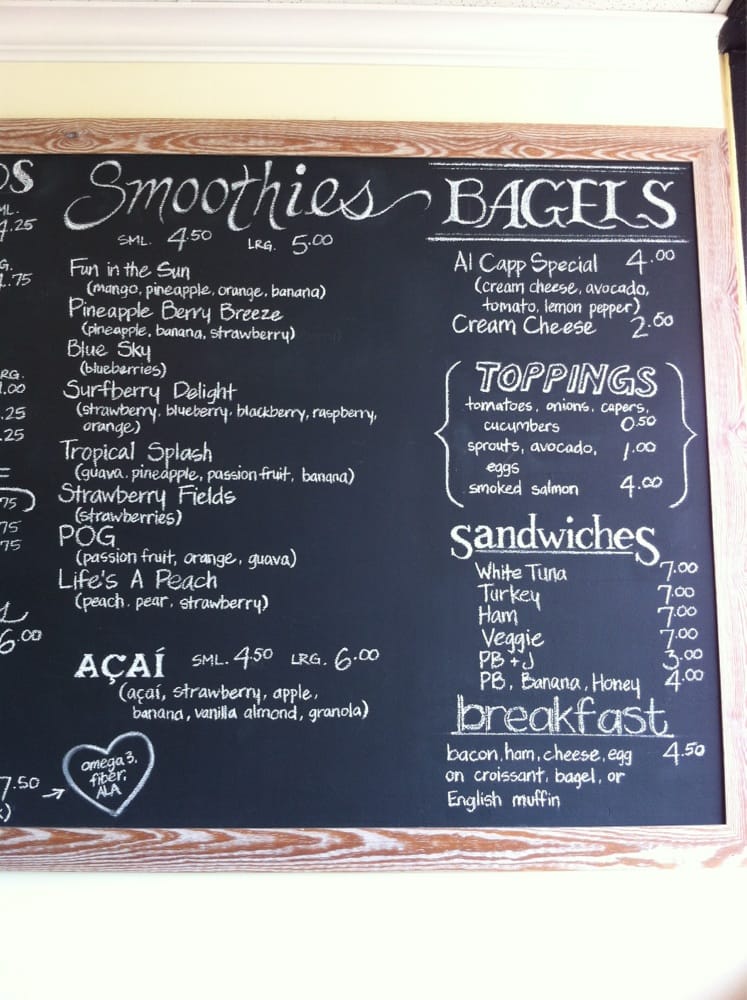 OS
ML.
4.25
G.
4.75
RG.
.00
.25
.25
75
75
75
6.00
7.50
Smoothies
SML. 4.50 LRG. 5.00
Fun in the Sun
(mango, pineapple, orange, banana)
Pineapple Berry Breeze
(pineapple, banana, strawberry)
Blue Sky
(blueberries)
Surfberry Delight
(strawberry, blueberry, blackberry, raspberry,
orange)
Tropical Splash
(guava, pineapple, passion fruit, banana)
Strawberry Fields
(strawberries)
POG
(passion fruit, orange, guava)
Life's A Peach
(peach, pear, strawberry)
AÇAÍ SML. 4.50 LRG. 6.00
(açaí, strawberry, apple,
banana, vanilla almond, granola)
omega 3,
fiber,
ALA
BAGELS
Al Capp Special 4.00
(cream cheese, avocado,
tomato, lemon pepper)
Cream Cheese 2.50
TOPPINGS
tomatoes, onions, capers,
cucumbers 0.50
sprouts, avocado, 1.00
eggs
smoked salmon 4.00
Sandwiches
White Tuna 7.00
Turkey 7.00
Ham 7.00
Veggie 7.00
PB + J 3.00
PB, Banana, Honey 4.00
breakfast
bacon, ham, cheese, egg 4.50
on croissant, bagel, or
English muffin